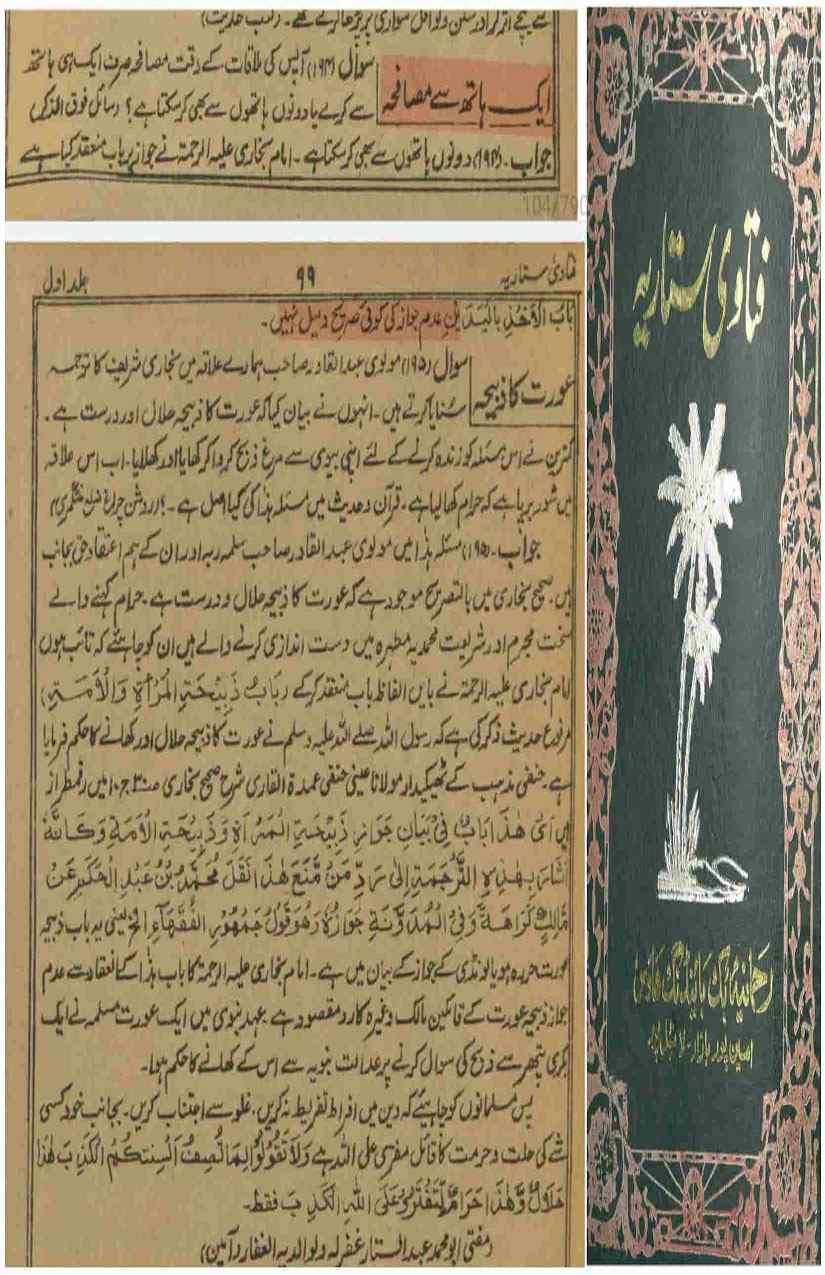 سے نیچے اتر کر اور سنن و نوافل سواری پر پڑھا کرتے تھے۔ (کتب حدیث)
ایک ہاتھ سے مصافحہ
سوال (۱۹۴) آپس کی ملاقات کے وقت مصافحہ صرف ایک ہی ہاتھ
سے کرے یا دونوں ہاتھوں سے بھی کر سکتا ہے؟ (سائل فوق الذکر)
جواب۔ (۱۹۴) دونوں ہاتھوں سے بھی کر سکتا ہے۔ امام بخاری علیہ الرحمۃ نے جواز پر باب منعقد کیا ہے
104/790
فتاویٰ ستاریہ ۹۹ جلد اول
بَابُ الْاَخْذِ بِالْیَدَیْنِ عدم جواز کی کوئی صریح دلیل نہیں۔
عورت کا ذبیحہ
سوال (۱۹۵) مولوی عبدالقادر صاحب ہمارے علاقہ میں بخاری شریف کا ترجمہ
سنایا کرتے ہیں۔ انہوں نے بیان کیا کہ عورت کا ذبیحہ حلال اور درست ہے۔
کمترین نے اس مسئلہ کو زندہ کرنے کے لئے اپنی بیوی سے مرغ ذبح کروا کر کھایا اور کھلایا۔ اب اس علاقہ
میں شور برپا ہے کہ حرام کھا لیا ہے۔ قرآن و حدیث میں مسئلہ ہذا کی کیا اصل ہے۔ ؟ (روشن چراغ ضلع منٹگمری)
جواب۔ (۱۹۵) مسئلہ ہذا میں مولوی عبدالقادر صاحب سلمہ ربہ اور ان کے ہم اعتقاد حق بجانب
ہیں۔ صحیح بخاری میں بالتصریح موجود ہے کہ عورت کا ذبیحہ حلال و درست ہے۔ حرام کہنے والے
سخت مجرم اور شریعت محمدیہ مطہرہ میں دست اندازی کرنے والے ہیں ان کو چاہئے کہ تائب ہوں
امام بخاری علیہ الرحمۃ نے بایں الفاظ باب منعقد کر کے (بَابُ ذَبِیْحَۃِ الْمَرْأَۃِ وَالْاَمَۃِ)
مرفوع حدیث ذکر کی ہے کہ رسول اللہ صلے اللہ علیہ وسلم نے عورت کا ذبیحہ حلال اور کھانے کا حکم فرمایا
ہے۔ حنفی مذہب کے ٹھیکیدار مولانا عینی حنفی عمدۃ القاری شرح صحیح بخاری ص۳۰ ج۱۰ میں رقمطراز
ہیں اَیْ ھٰذَا بَابٌ فِیْ بَیَانِ جَوَازِ ذَبِیْحَۃِ الْمَرْاَۃِ وَذَبِیْحَۃِ الْاَمَۃِ وَکَانَّہٗ
اَشَارَ بِھٰذِہِ التَّرْجَمَۃِ اِلٰی رَدِّ مَنْ مَّنَعَ ھٰذَا نَقَلَ مُحَمَّدُ بْنُ عَبْدِ الْحَکَمِ عَنْ
مَّالِکٍ کَرَاھَۃً وَفِی الْمُدَوَّنَۃِ جَوَازُہٗ وَھُوَ قَوْلُ جَمْھُوْرِ الْفُقَھَآءِ الخ یعنی یہ باب ذبیحہ
عورت حرہ ہو یا لونڈی کے جواز کے بیان میں ہے۔ امام بخاری علیہ الرحمۃ کا باب ہذا کے انعقاد سے عدم
جواز ذبیحہ عورت کے قائلین مالک وغیرہ کا رد مقصود ہے۔ عہد نبوی میں ایک عورت مسلمہ نے ایک
بکری پتھر سے ذبح کی سوال کرنے پر عدالت نبویہ سے اس کے کھانے کا حکم ہوا۔
پس مسلمانوں کو چاہیئے کہ دین میں افراط تفریط نہ کریں، غلو سے اجتناب کریں۔ بجانب خود کسی
شے کی حلت و حرمت کا قائل مفتری علی اللہ ہے وَلَا تَقُوْلُوْا لِمَا تَصِفُ اَلْسِنَتُکُمُ الْکَذِبَ ھٰذَا
حَلَالٌ وَّھٰذَا حَرَامٌ لِّتَفْتَرُوْا عَلَی اللّٰہِ الْکَذِبَ فقط۔
(مفتی ابو محمد عبدالستار غفرلہ ولوالدیہ الغفار آمین)
فتاویٰ ستاریہ
رحمانیہ بک بائینڈنگ ہاؤس
امین پور بازار۔ لائلپور